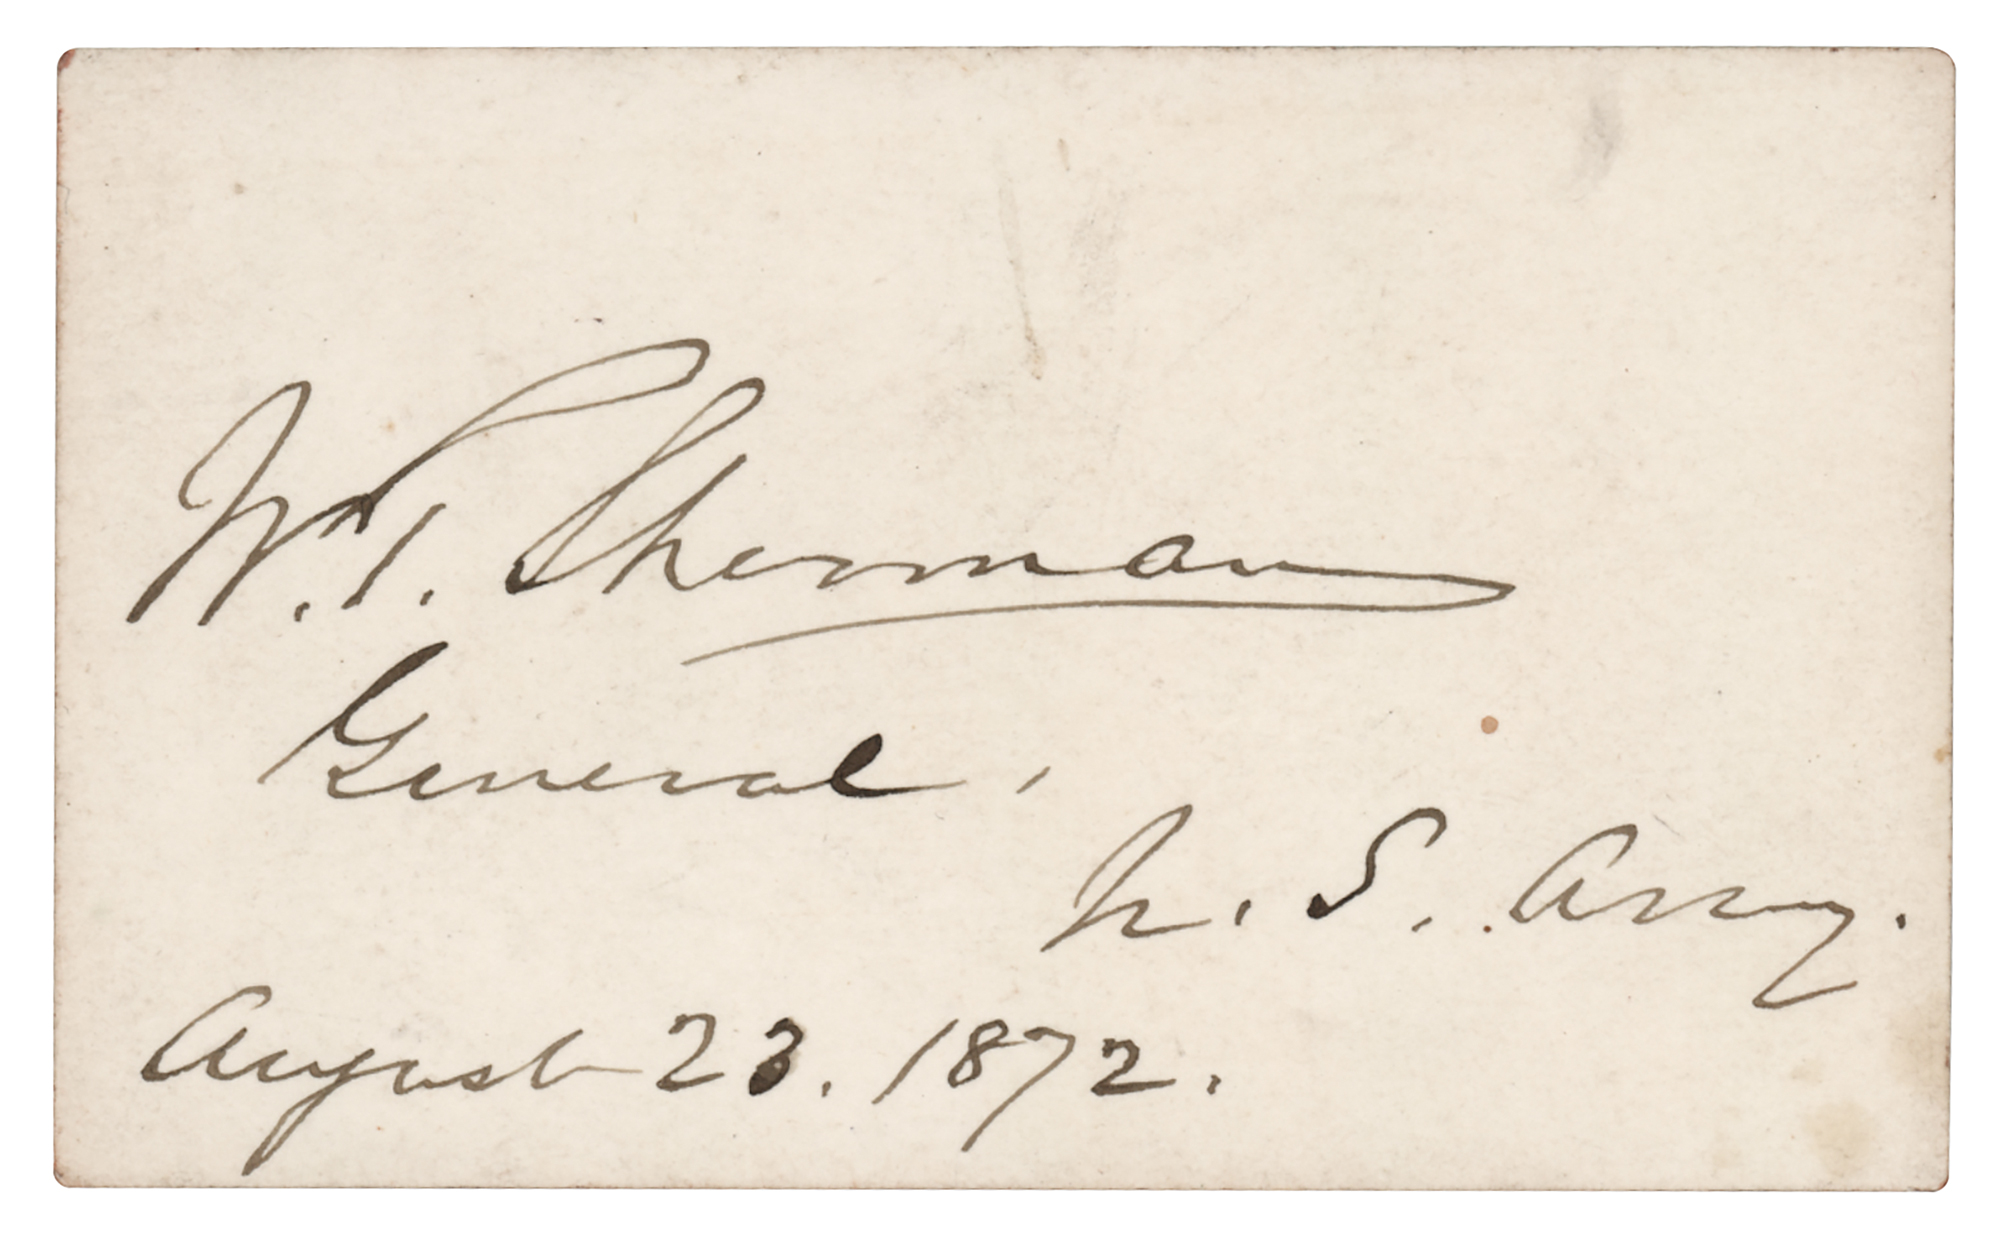 W. T. Sherman
General,
U. S. Army.
August 23. 1872.